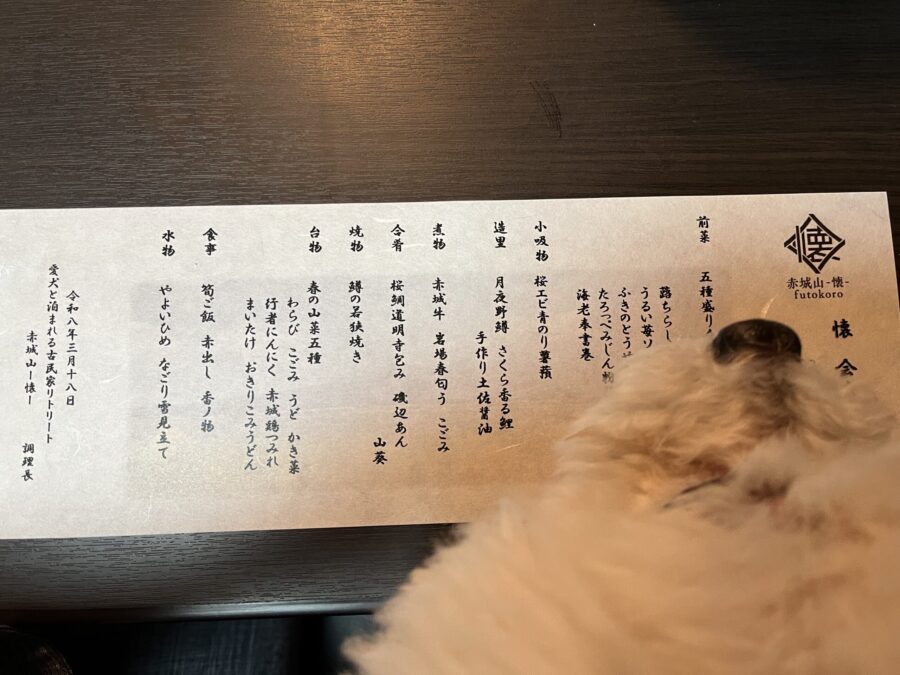 懐
赤城山-懐-
futokoro
懐 会
前菜 五種盛り
蕗ちらし
うるい苺ソ
ふきのとう
たらっぺみじん粉
海老奉書巻
小吸物 桜エビ青のり薯蕷
造里 月夜野鱒 さくら香る鯉
手作り土佐醤油
煮物 赤城牛 岩場春匂う こごみ
合肴 桜鯛道明寺包み 磯辺あん
山葵
焼物 鱒の若狭焼き
台物 春の山菜五種
わらび こごみ うど かき菜
行者にんにく 赤城鶏つみれ
まいたけ おきりこみうどん
食事 筍ご飯 赤出し 香ノ物
水物 やよいひめ なごり雪見立て
令和八年三月十八日
愛犬と泊まれる古民家リトリート
赤城山ー懐ー
調理長